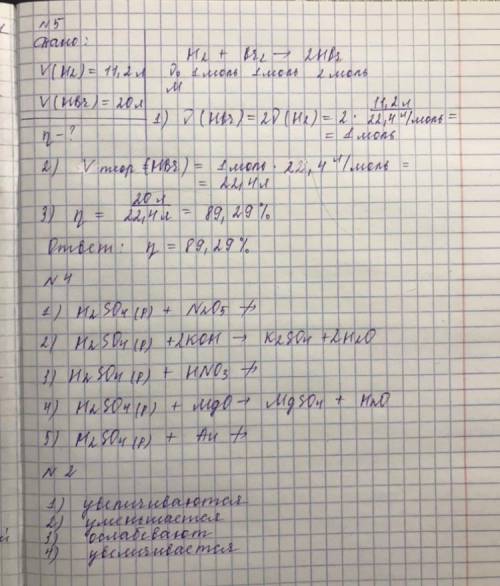 N5
Дано:
H2 + Br2 → 2HBr
V(H2) = 11,2 л
1 моль 1 моль 2 моль
V(HBr) = 20 л
η - ?
1) ν(HBr) = 2ν(H2) = 2 · 11,2 л / 22,4 л/моль =
= 1 моль
2) V теор (HBr) = 1 моль · 22,4 л/моль =
= 22,4 л
3) η = 20 л / 22,4 л = 89,29%
Ответ: η = 89,29%
N4
1) H2SO4(р) + N2O5 ↛
2) H2SO4(р) + 2KOH → K2SO4 + 2H2O
3) H2SO4(р) + HNO3 ↛
4) H2SO4(р) + MgO → MgSO4 + H2O
5) H2SO4(р) + Au ↛
N2
1) увеличиваются
2) уменьшается
3) ослабевают
4) увеличивается